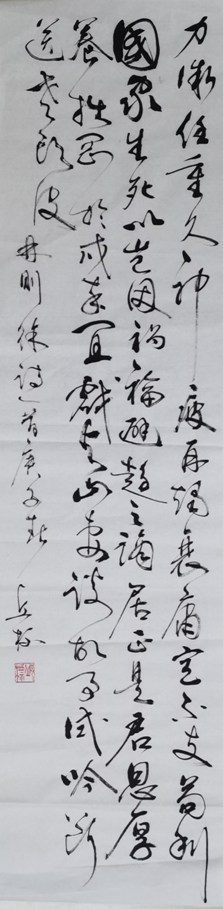 力微任重久神疲再竭衰庸定不支苟利
國家生死以豈因禍福避趨之謫居正是君恩厚
養拙剛於戍卒宜戲与山妻談故事試吟斷
送老頭皮 林則徐詩一首庚子秋